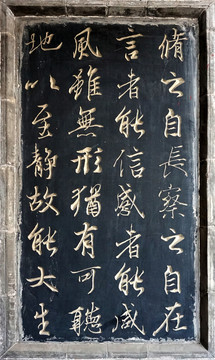 脩之自長察之自在
言者能信感者能感
風雖無形猶有可聽
地以至靜故能大生